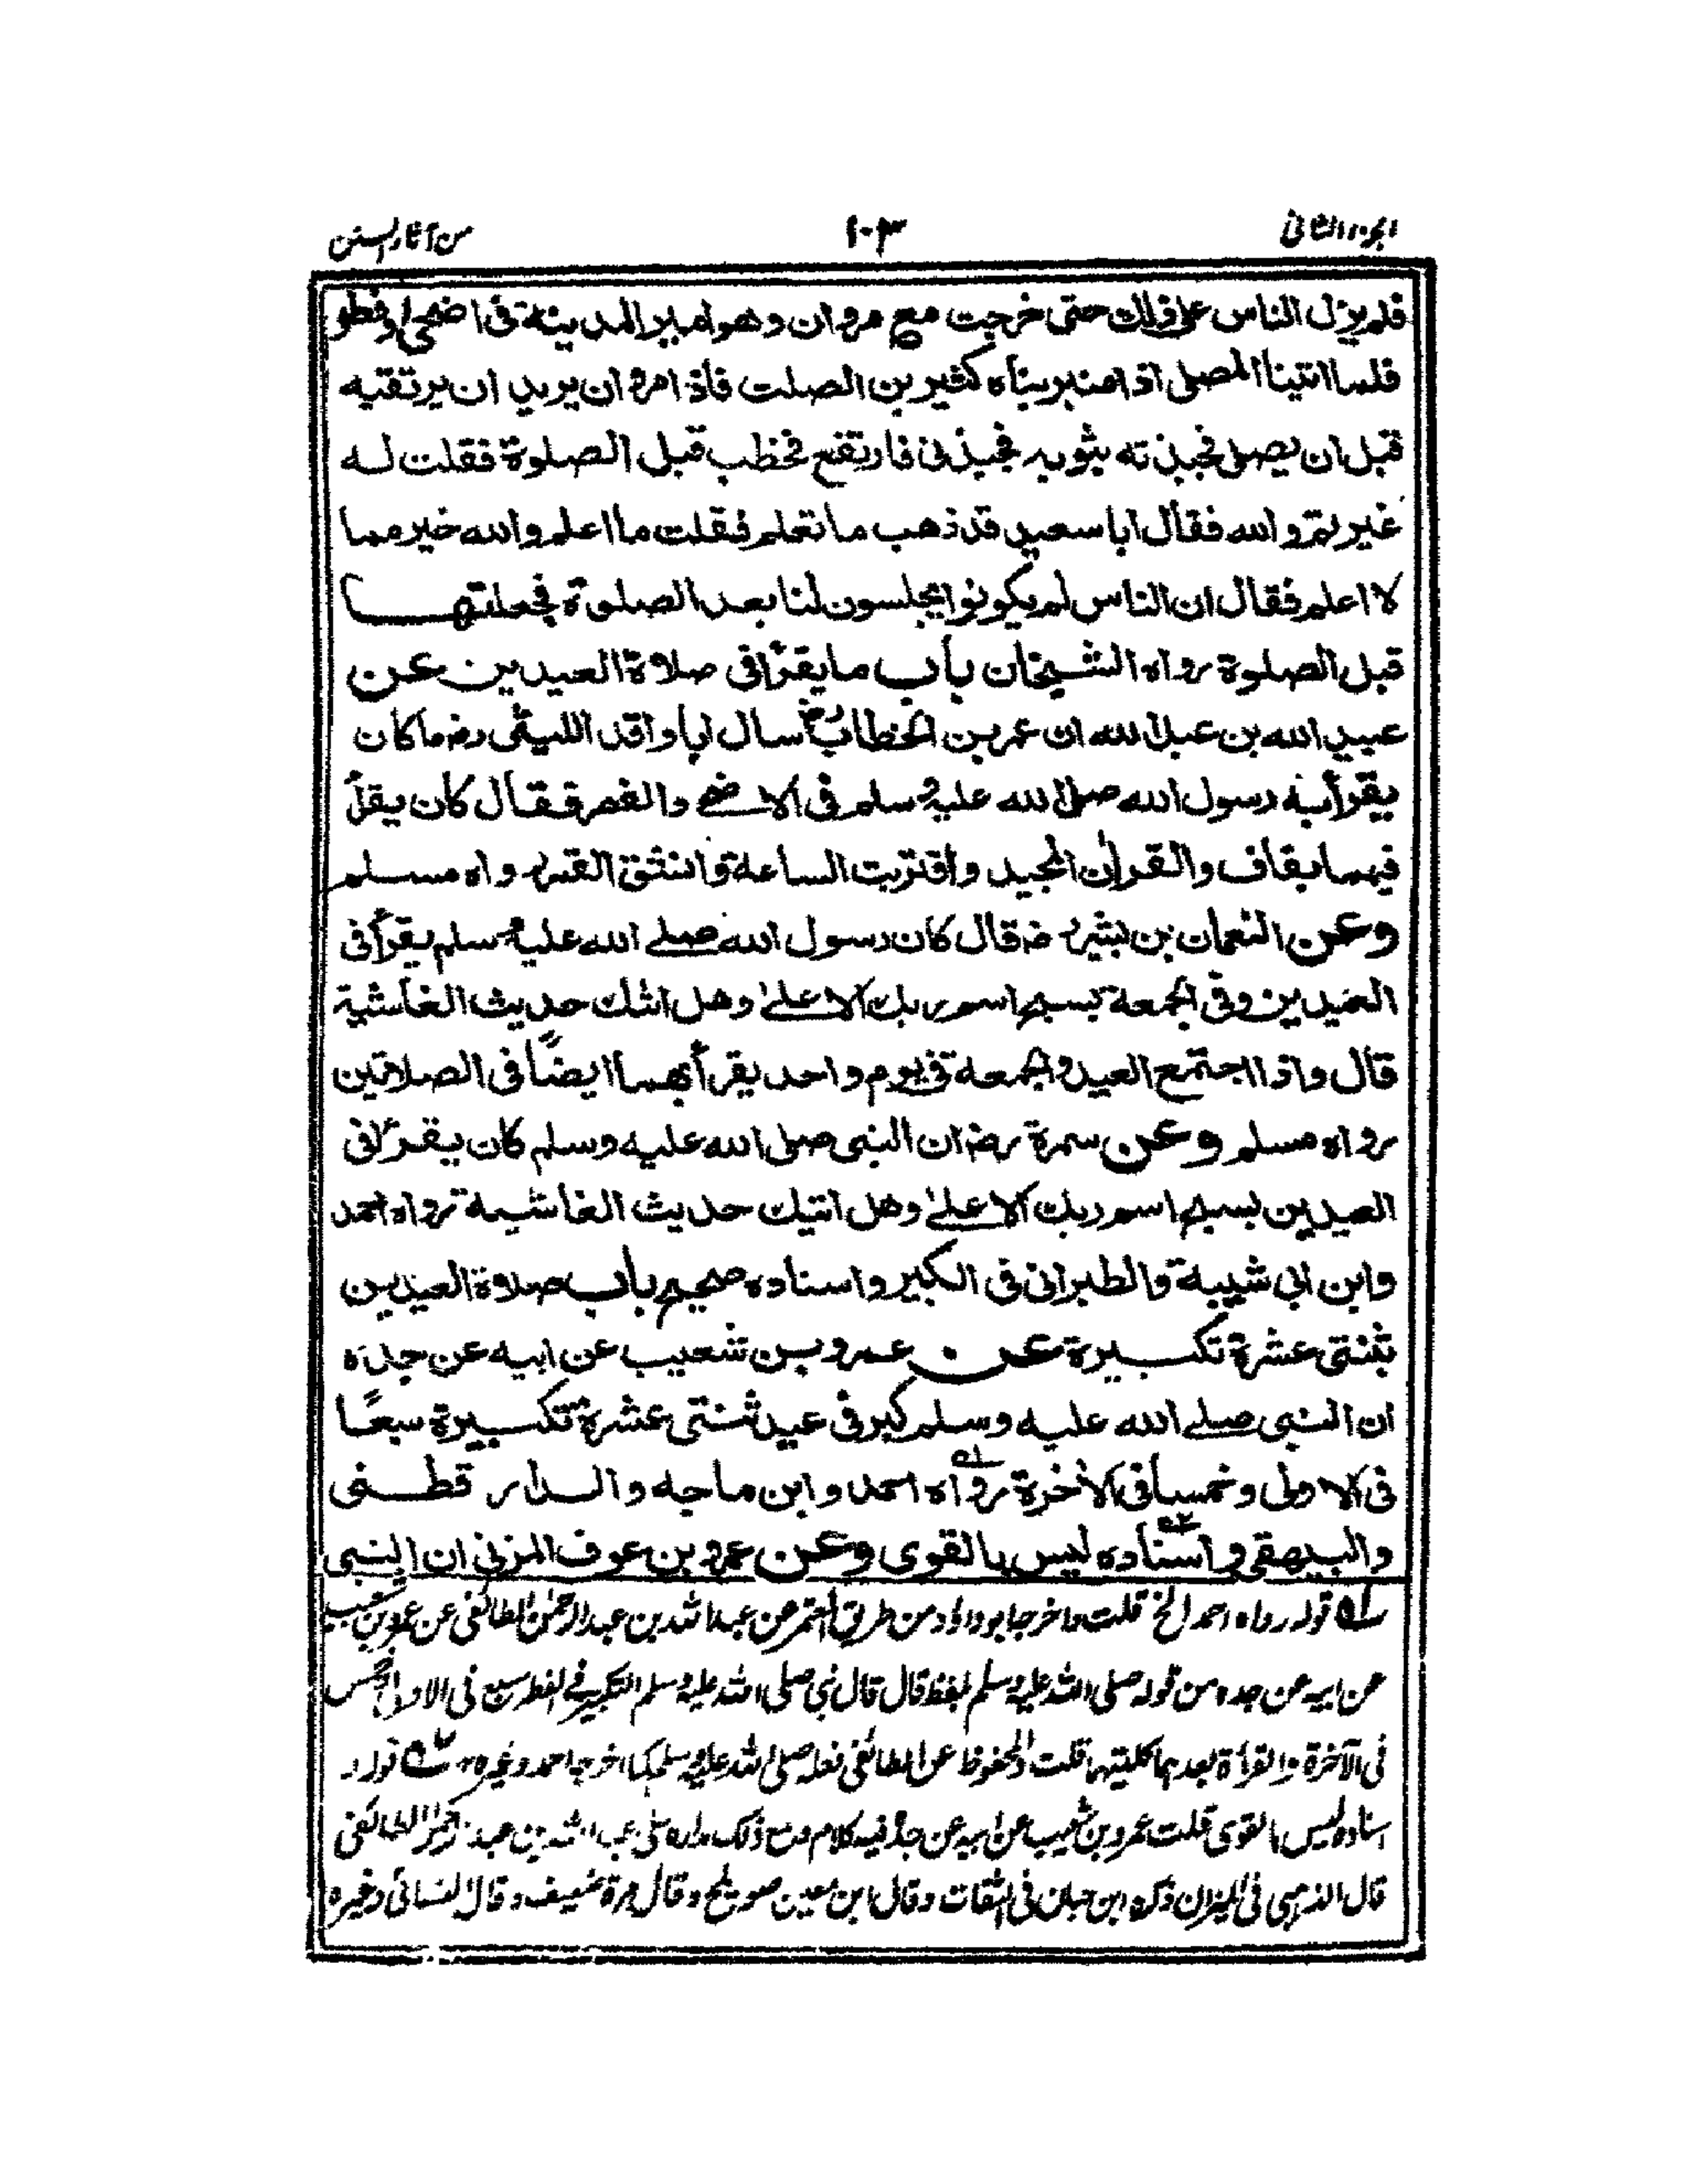 الجزء الثانى
١٠٣
من آثار السنن
فلم يزل الناس على ذلك حتى خرجت مع مروان وهو امير المدينة فى اضحى او فطر
فلما اتينا المصلى اذا منبر بناه كثير بن الصلت فاذا مروان يريد ان يرتقيه
قبل ان يصلى فجبذته بثوبه فجبذنى فارتفع فخطب قبل الصلوة فقلت له
غيرتم والله فقال ابا سعيد قد ذهب ما تعلم فقلت ما اعلم والله خير مما
لا اعلم فقال ان الناس لم يكونوا يجلسون لنا بعد الصلوة فجعلتها
قبل الصلوة رواه الشيخان باب ما يقرأ فى صلاة العيدين عن
عبيد الله بن عبد الله ان عمر بن الخطاب رض سال ابا واقد الليثى رض ما كان
يقرأ به رسول الله صلى الله عليه وسلم فى الاضحے والفطر فقال كان يقرأ
فيهما بقاف والقران المجيد واقتربت الساعة وانشق القمر رواه مسلم
وعن النعمان بن بشير رض قال كان رسول الله صلے الله عليه وسلم يقرأ فى
العيدين وفى الجمعة بسبح اسم ربك الاعلےٰ وهل اتٰك حديث الغاشية
قال واذا اجتمع العيد والجمعة فى يوم واحد يقرأ بهما ايضًا فى الصلاتين
رواه مسلم وعن سمرة رض ان النبى صلى الله عليه وسلم كان يقرأ فى
العيدين بسبح اسم ربك الاعلےٰ وهل اتيك حديث الغاشية رواه احمد
وابن ابى شيبة والطبرانى فى الكبير واسناده صحيح باب صلاوة العيدين
بثنتى عشرة تكبيرة عن عمرو بن شعيب عن ابيه عن جده
ان النبى صلے الله عليه وسلم كبر فى عيد ثنتى عشرة تكبيرة سبعًا
فى الاولى وخمسا فى الاخرة رواه احمد وابن ماجه والدار قطنى
والبيهقى واسناده ليس بالقوى وعن عمرو بن عوف المزنى ان النبى
سله قوله رواه احمد الخ قلت واخرجه ابوداؤد من طريق المعتمر عن عبد الله بن عبد الرحمٰن الطائفى عن عمرو بن شعيب
عن ابيه عن جده من قوله صلى الله عليه وسلم بلفظ قال قال نبى صلى الله عليه وسلم التكبير فے الفطر سبع فى الاولى وخمس
فى الآخرة والقرأة بعدهما كلتيهما قلت والمحفوظ عن الطائفى فعله صلى الله عليه وسلم كما اخرجه احمد وغيره ٢ه قوله و
اسناده ليس بالقوى قلت عمرو بن شعيب عن ابيه عن جده فيه كلام ومع ذلك مداره على عبد الله بن عبد الرحمٰن الطائفى
قال الذهبى فى الميزان ذكره ابن حبان فى الثقات وقال ابن معين صويلح وقال مرة ضعيف وقال النسائى وغيره